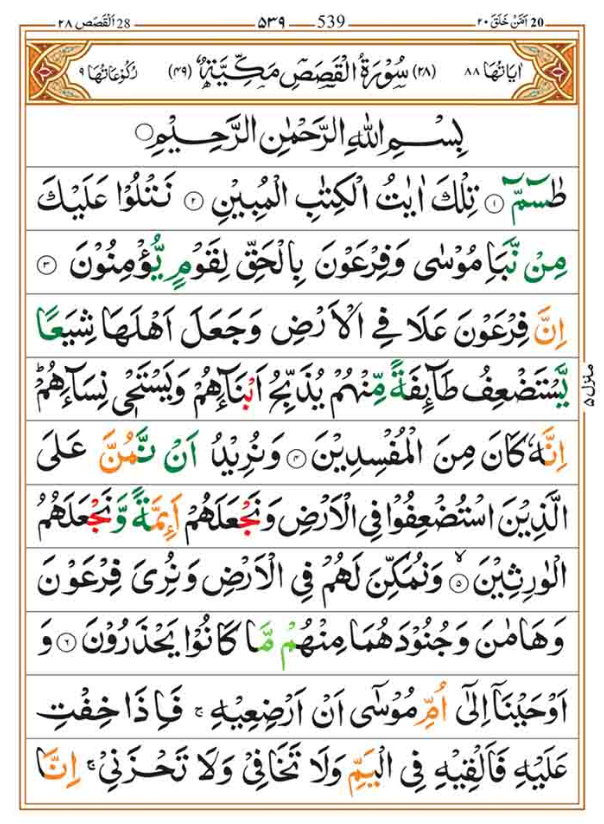 28 اَلْقَصَص ٢٨ ٥٣٩ 539 20 اَمَّنْ خَلَقَ ٢٠
اٰيَاتُهَا ٨٨ (٢٨) سُوْرَةُ الْقَصَصِ مَكِّيَّةٌ (٤٩) رُكُوْعَاتُهَا ٩
بِسْمِ اللّٰهِ الرَّحْمٰنِ الرَّحِيْمِ
طٰسٓمّٓ ١ تِلْكَ اٰيٰتُ الْكِتٰبِ الْمُبِيْنِ ٢ نَتْلُوْا عَلَيْكَ
مِنْ نَّبَاِ مُوْسٰى وَفِرْعَوْنَ بِالْحَقِّ لِقَوْمٍ يُّؤْمِنُوْنَ ٣
اِنَّ فِرْعَوْنَ عَلَا فِى الْاَرْضِ وَجَعَلَ اَهْلَهَا شِيَعًا
يَّسْتَضْعِفُ طَآئِفَةً مِّنْهُمْ يُذَبِّحُ اَبْنَآءَهُمْ وَيَسْتَحْىٖ نِسَآءَهُمْ ؕ
اِنَّهٗ كَانَ مِنَ الْمُفْسِدِيْنَ ٤ وَنُرِيْدُ اَنْ نَّمُنَّ عَلَى
الَّذِيْنَ اسْتُضْعِفُوْا فِى الْاَرْضِ وَنَجْعَلَهُمْ اَئِمَّةً وَّنَجْعَلَهُمُ
الْوٰرِثِيْنَ ۙ ٥ وَنُمَكِّنَ لَهُمْ فِى الْاَرْضِ وَنُرِىَ فِرْعَوْنَ
وَهَامٰنَ وَجُنُوْدَهُمَا مِنْهُمْ مَّا كَانُوْا يَحْذَرُوْنَ ٦ وَ
اَوْحَيْنَآ اِلٰٓى اُمِّ مُوْسٰٓى اَنْ اَرْضِعِيْهِ ۚ فَاِذَا خِفْتِ
عَلَيْهِ فَاَلْقِيْهِ فِى الْيَمِّ وَلَا تَخَافِىْ وَلَا تَحْزَنِىْ ۚ اِنَّا
منزل ٥